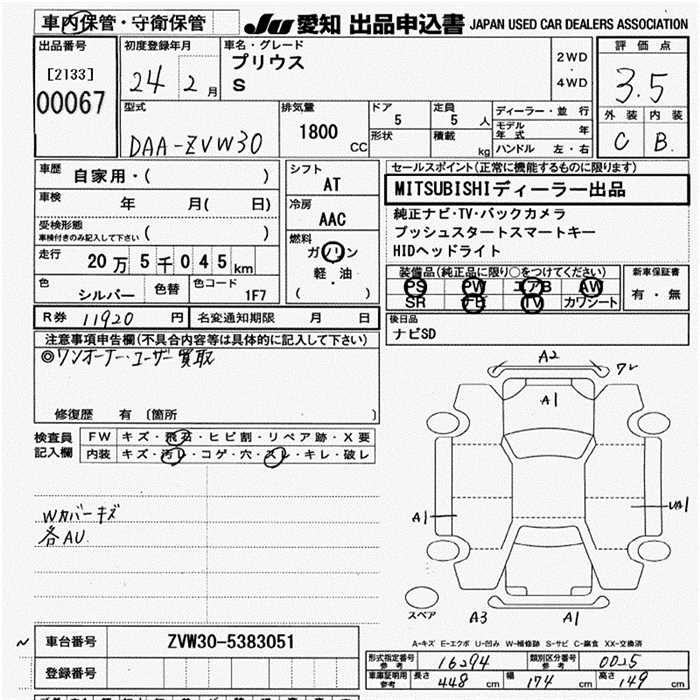 車内保管・守衛保管
JU 愛知 出品申込書 JAPAN USED CAR DEALERS ASSOCIATION
出品番号
[2133]
00067
初度登録年月
24 2月
車名・グレード
プリウス
S
2WD
・
4WD
評価点
3.5
外装 内装
C B.
型式
DAA-ZVW30
排気量
1800
CC
ドア
5
定員
5 人
形状
積載
kg
ディーラー・並行
モデル年式 年
ハンドル 左・右
車歴
自家用・( )
車検
年 月( 日)
受検形態
車検付きのみ記入して下さい ( )
走行
20万5千045km
色
シルバー
色替
色コード
1F7
シフト
AT
冷房
AAC
燃料
ガソリン
軽・油
( )
セールスポイント(正常に機能するものに限ります)
MITSUBISHIディーラー出品
純正ナビ・TV・バックカメラ
プッシュスタートスマートキー
HIDヘッドライト
装備品(純正品に限り○をつけてください)
PS PW エアB AW
SR TV カワシート
新車保証書
有・無
R券 11920 円
名変通知期限 月 日
後日品
ナビSD
注意事項申告欄(不具合内容等は具体的に記入して下さい)
◎ワンオーナー・ユーザー買取
修復歴 有 〔箇所 〕
検査員
記入欄
FW キズ・飛石・ヒビ割・リペア跡・X要
内装 キズ・汚レ・コゲ・穴・スレ・キレ・破レ
Wカバーキズ
各AU.
A2
ワレ
A1
A1
A1
スペア
A3
A1
A-キズ E-エクボ U-凹み W-補修跡 S-サビ C-腐食 XX-交換済
車台番号
ZVW30-5383051
登録番号
形式指定番号
参考
16294
類別区分番号
参考
0025
車庫証明用
参考
長さ 448 cm
幅 174 cm
高さ 149 cm